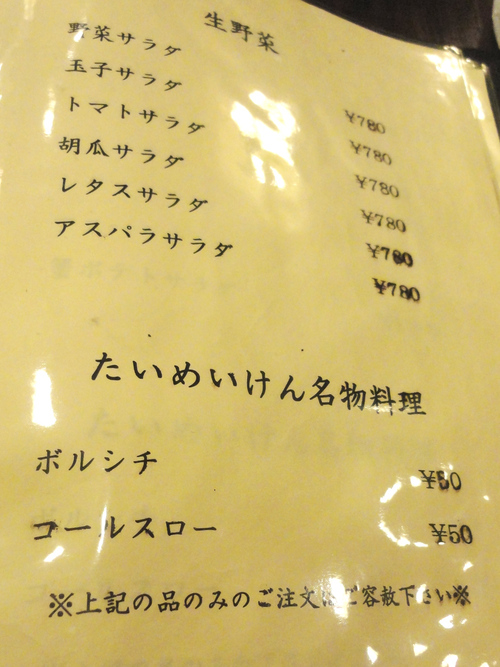 生野菜
野菜サラダ ¥780
玉子サラダ ¥780
トマトサラダ ¥780
胡瓜サラダ ¥780
レタスサラダ ¥780
アスパラサラダ ¥780
たいめいけん名物料理
ボルシチ ¥50
コールスロー ¥50
※上記の品のみのご注文はご容赦下さい※